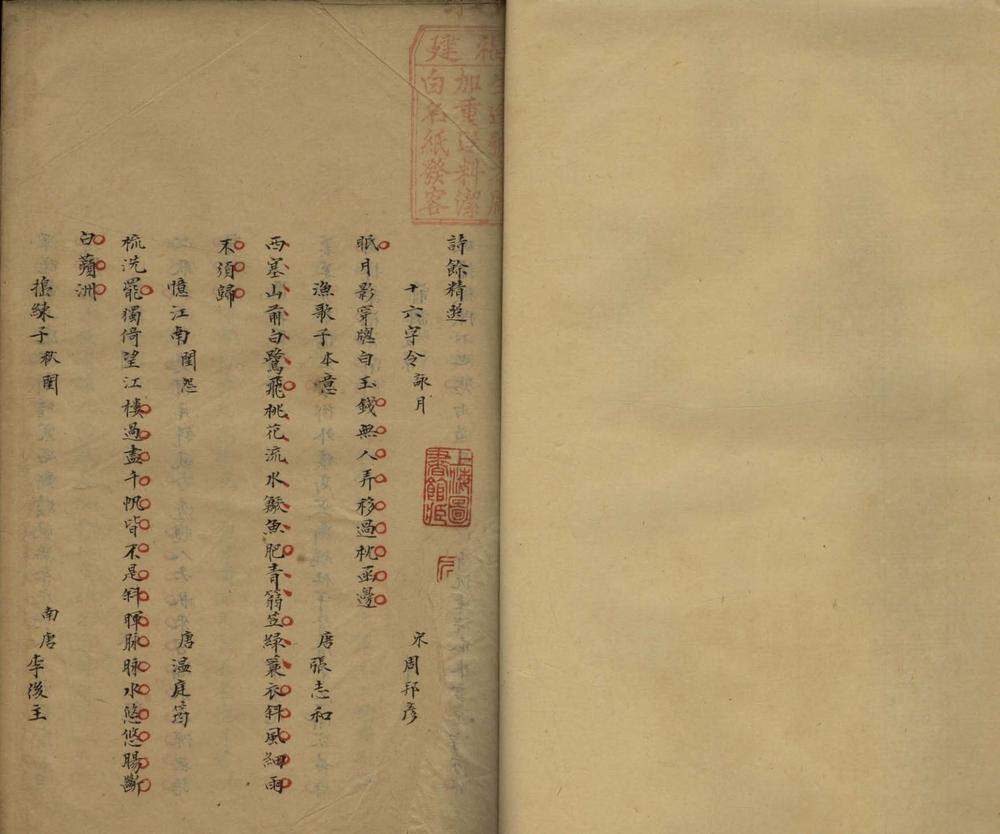 詩餘精選
十六字令 詠月 宋周邦彥
眠月影穿窓白玉錢無人弄移過枕函邊
漁歌子 本意 唐張志和
西塞山前白鷺飛桃花流水鱖魚肥青篛笠綠蓑衣斜風細雨
不須歸
憶江南 閨怨 唐溫庭筠
梳洗罷獨倚望江樓過盡千帆皆不是斜暉脉脉水悠悠腸斷
白蘋洲
搗練子 秋閨 南唐李後主
加重
料潔
白名紙發客
上海圖
書館藏